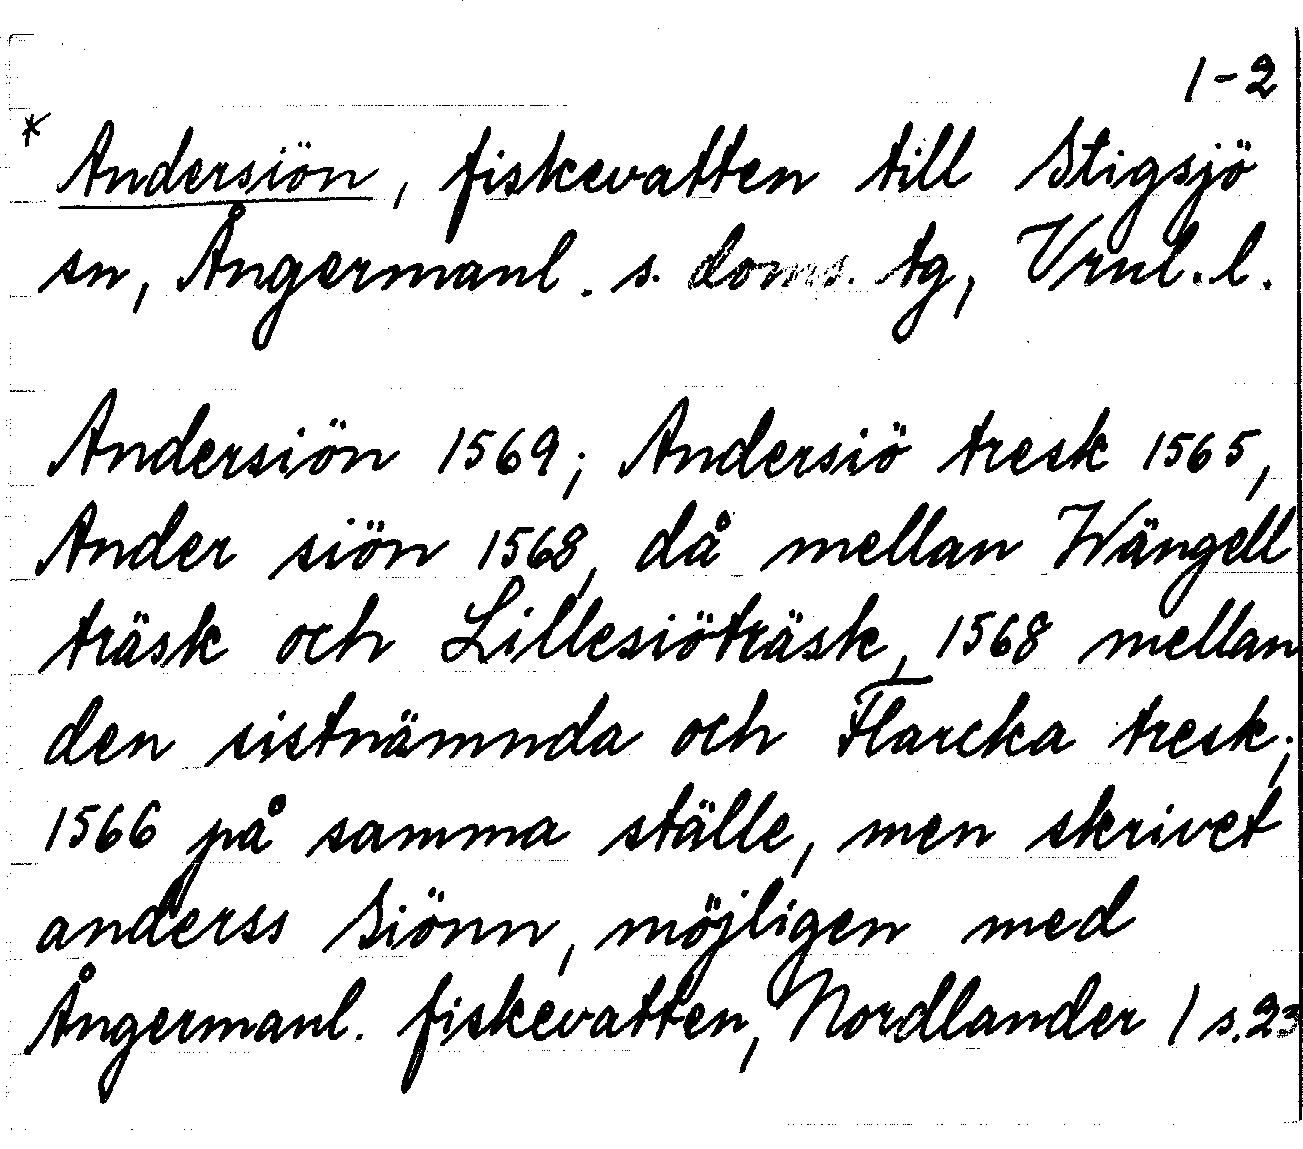 1-2
* Andersiön, fiskevatten till Stigsjö
sn, Ångermanl. s. doms. tg, Vrnl. l.
Andersiön 1569; Andersiö tresk 1565,
Ander siön 1568, då mellan Wängell
träsk och Lillesiöträsk, 1568 mellan
den sistnämnda och Flarcka tresk;
1566 på samma ställe, men skrivet
anderss Siönn, möjligen med
Ångermanl. fiskevatten, Nordlander 1 s. 23